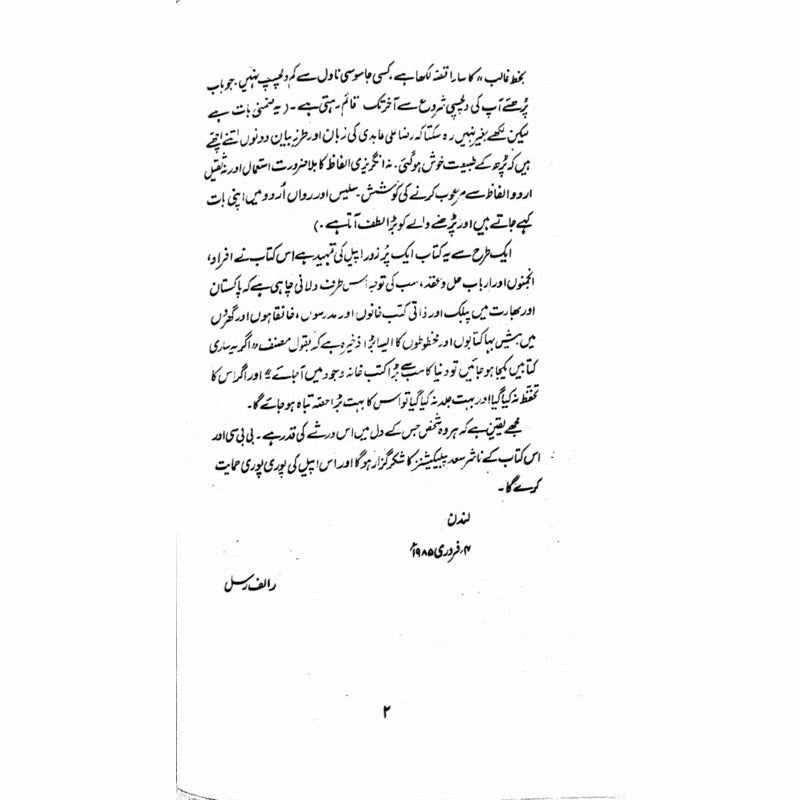 بخط غالب" کا سارا قصہ لکھا ہے، کسی جاسوسی ناول سے کم دلچسپ نہیں۔ جو باب
پڑھئے آپ کی دلچسپی شروع سے آخر تک قائم رہتی ہے۔ (یہ ضمنی بات ہے
لیکن لکھے بغیر نہیں رہ سکتا کہ رضا علی عابدی کی زبان اور طرزِ بیان دونوں اتنے اچھے
ہیں کہ پڑھ کے طبیعت خوش ہو گئی۔ نہ انگریزی الفاظ کا بلا ضرورت استعمال اور نہ ثقیل
اردو الفاظ سے مرعوب کرنے کی کوشش۔ سلیس اور رواں اُردو میں اپنی بات
کہے جاتے ہیں اور پڑھنے والے کو بڑا لطف آتا ہے۔)
ایک طرح سے یہ کتاب ایک پُر زور اپیل کی تمہید ہے اس کتاب نے افراد،
انجمنوں اور ارباب حل و عقد، سب کی توجہ اس طرف دلانی چاہی ہے کہ پاکستان
اور بھارت میں پبلک اور ذاتی کتب خانوں اور مدرسوں، خانقاہوں اور گھروں
میں بیش بہا کتابوں اور مخطوطوں کا ایسا بڑا ذخیرہ ہے کہ بقول مصنف "اگر یہ ساری
کتابیں یکجا ہو جائیں تو دنیا کا سب سے بڑا کتب خانہ وجود میں آ جائے" اور اگر اس کا
تحفظ نہ کیا گیا اور بہت جلد نہ کیا گیا تو اس کا بہت بڑا حصہ تباہ ہو جائے گا۔
مجھے یقین ہے کہ ہر وہ شخص جس کے دل میں اس ورثے کی قدر ہے۔ بی بی سی اور
اس کتاب کے ناشر سعد پبلیکیشنز کا شکر گزار ہوگا اور اس اپیل کی پوری پوری حمایت
کرے گا۔
لندن
۴؍ فروری ۱۹۸۵ء
رالف رسل
۲